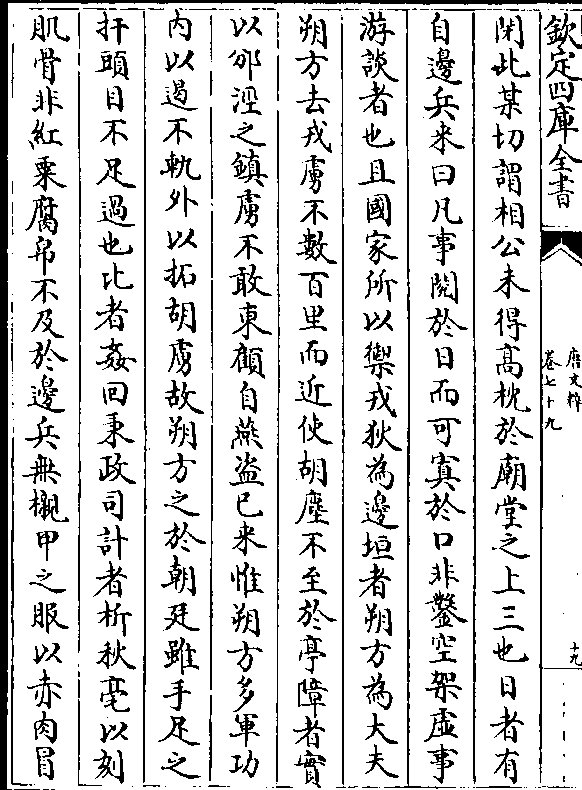 欽定四庫全書
唐文粹
卷七十九
十九
閑此某切謂相公未得髙枕於廟堂之上三也日者有
自邊兵来曰凡事閲於日而可寘於口非鑿空架虚事
游談者也且國家所以禦戎狄為邊垣者朔方為大夫
朔方去戎虜不數百里而近使胡塵不至於亭障者實
以邠涇之鎮虜不敢東顧自燕盜已来惟朔方多軍功
内以遏不軌外以拓胡虜故朔方之於朝廷雖手足之
扞頭目不足過也比者姦回秉政司計者析秋毫以刻
肌骨非紅粟腐帛不及於邊兵無櫬甲之服以赤肉冒